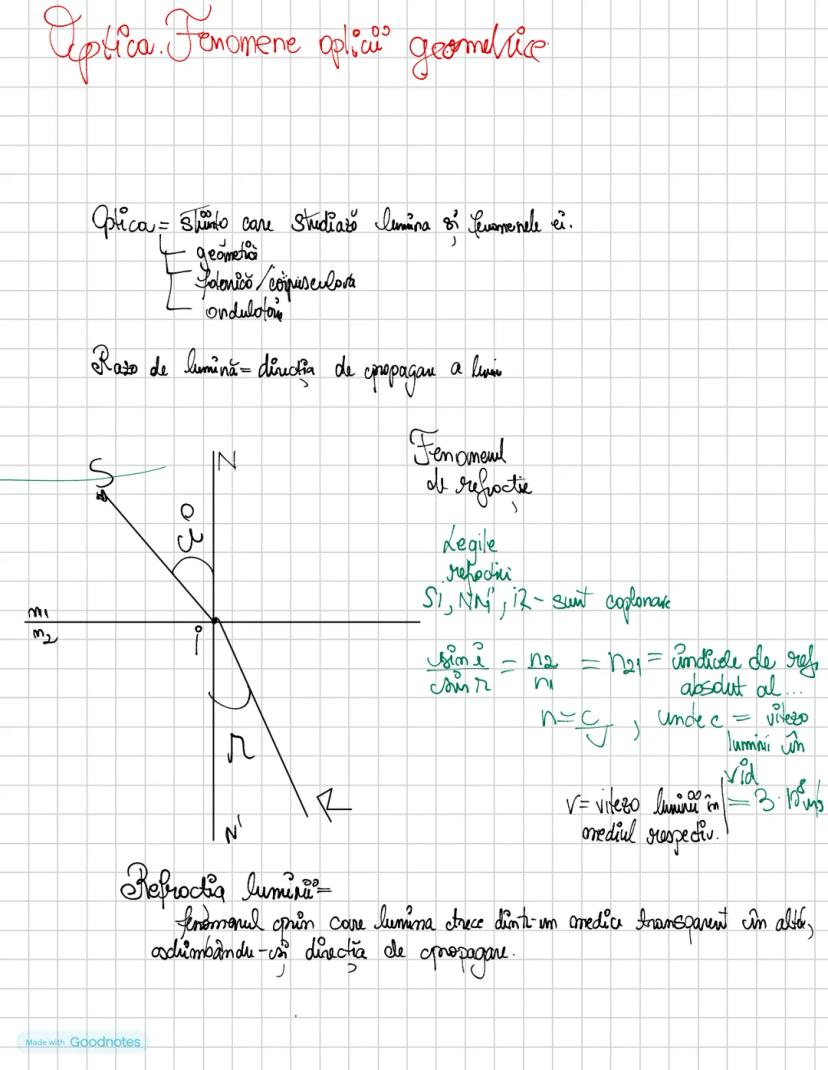 Optica. Fenomene opticii geometrice
Optica = știința care studiază lumina și fenomenele ei.
geometrică
fotonică/corpusculară
ondulatorie
Raza de lumină = direcția de propagare a
Fenomenul
de refracție
S
N
i
Legile
refracției
SI, NN', IR - sunt coplanare
n1
n2
I
sin i / sin r = n2 / n1 = n21 = indicele de ref.
absolut al...
n = c / v , unde c = viteza
luminii în
vid
= 3·10^8 m/s
v = viteza luminii în
mediul respectiv.
r
R
N'
Refracția luminii =
fenomenul prin care lumina trece dintr-un mediu transparent în altul,
schimbându-și direcția de propagare.
Made with Goodnotes